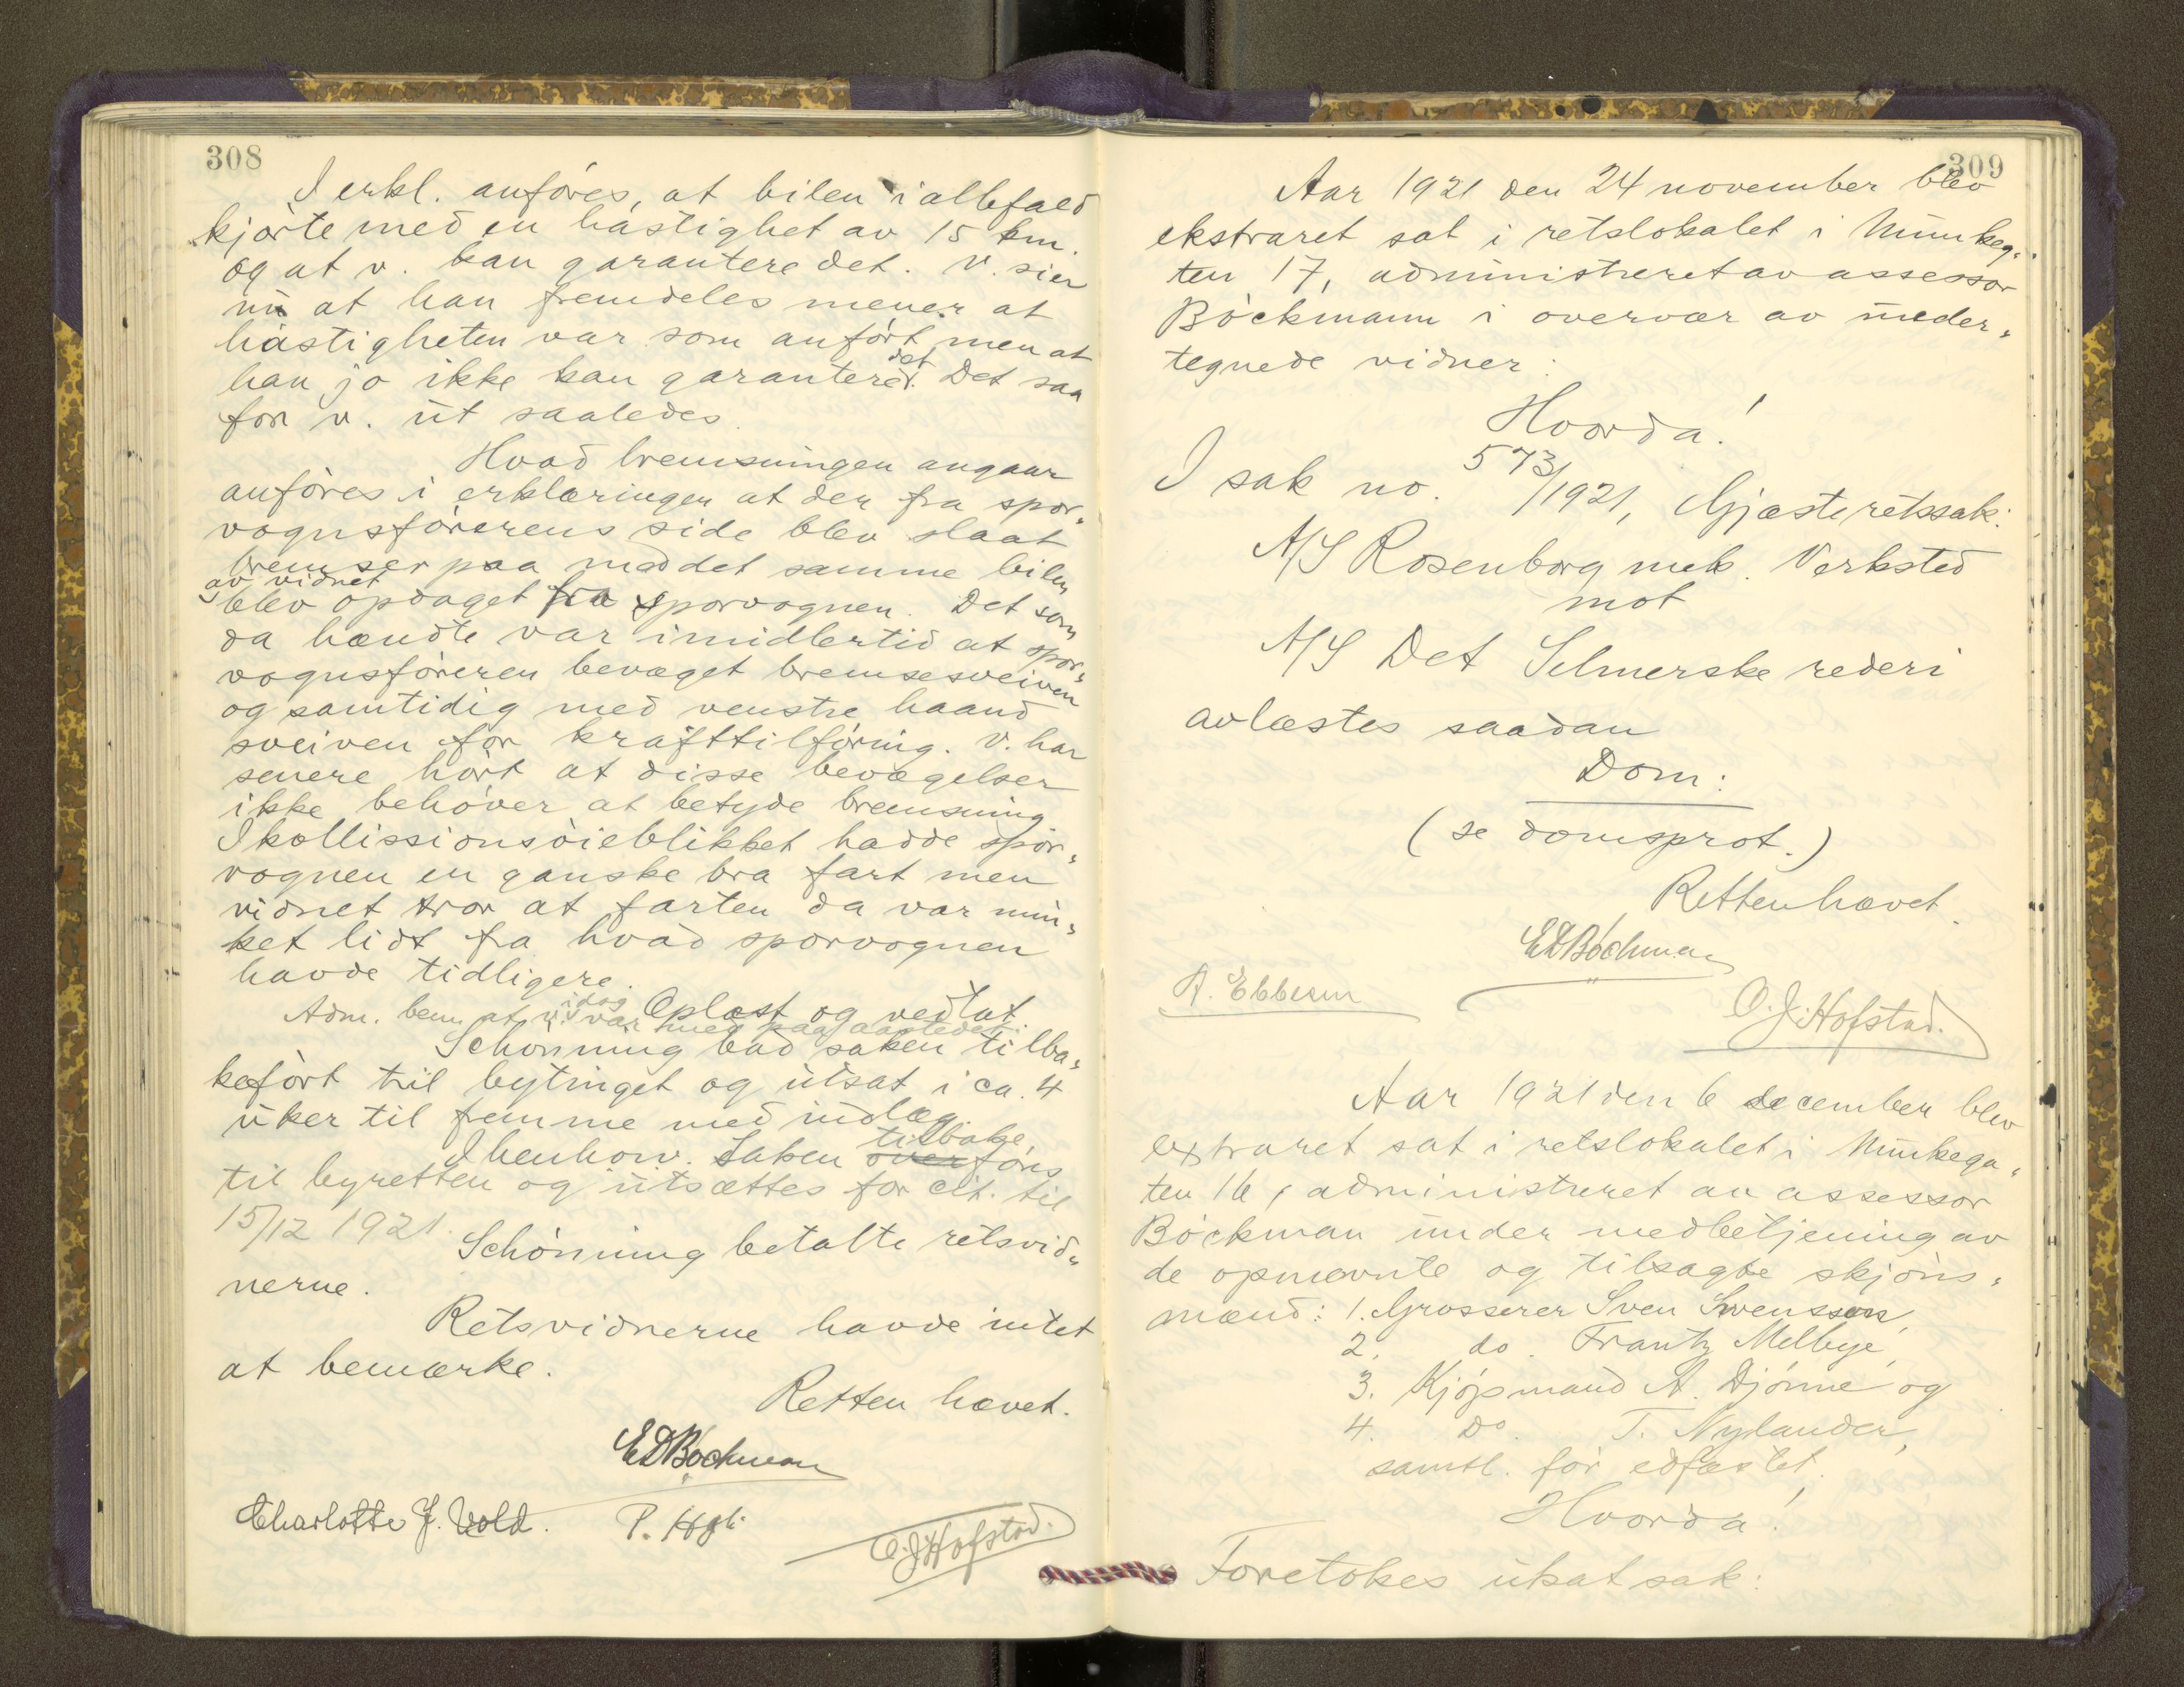 308
I erkl. anføres, at bilen iallefald
kjørte med en hastighet av 15 km.
og at v. kan garantere det. V. sier
nu at han fremdeles mener at
hastigheten var som anført men at
han jo ikke kan garantere det. Det saa
for v. ut saaledes.
Hvad bremsningen angaar
anføres i erklæringen at der fra spor-
vognsførerens side blev slaat
bremser paa med det samme bilen
av vidnet
blev opdaget fra sporvognen. Det som
da hændte var imidlertid at spor-
vognsføreren bevæget bremsesveiven
og samtidig med venstre haand
sveiven for krafttilføring. V. har
senere hørt at disse bevægelser
ikke behøver at betyde bremsning
I kollissionsøieblikket hadde spor-
vognen en ganske bra fart men
vidnet tror at farten da var min-
ket lidt fra hvad sporvognen
havde tidligere.
Oplæst og vedtat.
Adm. bem. at v. idag var med paa aastedet.
Schønning bad saken tilba-
keført til bytinget og utsat i ca. 4
uker til fremme med indlæg.
Ihenhorv. Saken over tilbake-
føres
til byretten og utsættes for cit. til
15/12 1921.
Schønning betalte retsvid-
nerne.
Retsvidnerne havde intet
at bemærke.
Retten hævet.
EDBøckman
Charlotte J. Vold. P.
O.J.Hofstad.
309
Aar 1921 den 24 november blev
ekstraret sat i retslokalet i Munkeg-
ten 17, administreret av assessor
Bøckmann i overvær av under-
tegnede vidner:
Hvorda!
I sak no. 573/1921, Gjæsteretssak:
A/S Rosenborg mek. Verksted
mot
A/S Det Selmerske rederi
avlæstes saadan
Dom:
(se domsprot.)
Retten hævet.
EDBøckman
A. Ebbesen
O.J.Hofstad.
Aar 1921 den 6 december blev
extraret sat i retslokalet i Munkega-
ten 16, administreret av assessor
Bøckman under medbetjening av
de opnævnte og tilsagte skjøns-
mænd: 1. Grosserer Sven Svensson,
2. do. Frantz Melbye,
3. Kjøpmand A. Djønne og
4. do. T. Nylander,
samtl. før edfæstet.
Hvorda!
Foretokes utsat sak: